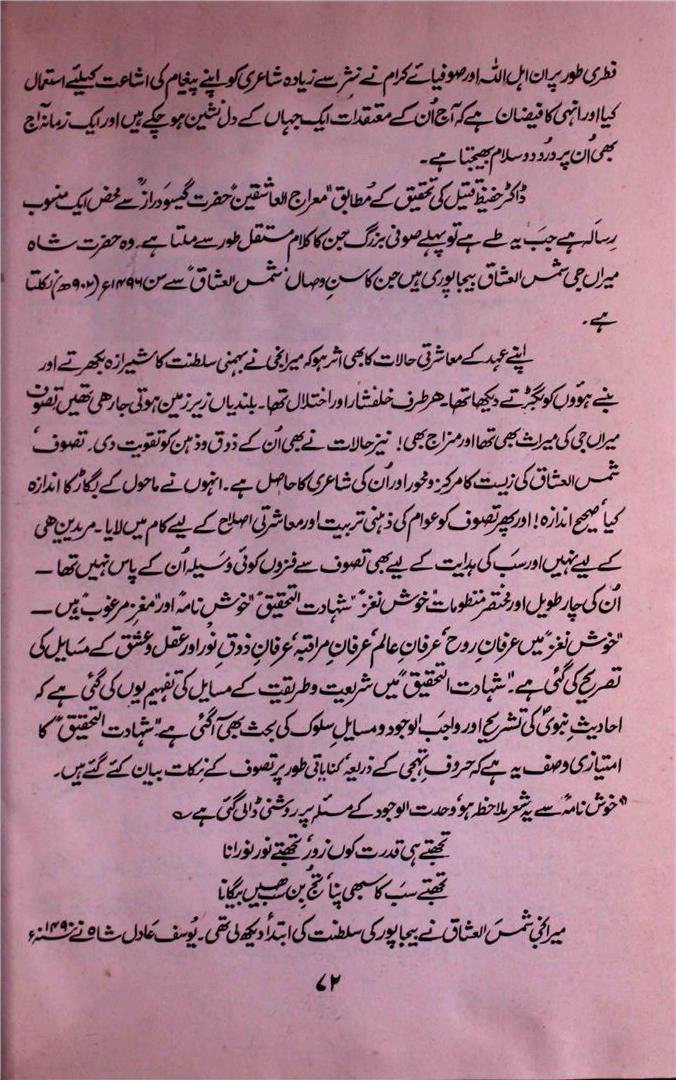 فطری طور پر ان اہل اللہ اور صوفیائے کرام نے نثر سے زیادہ شاعری کو اپنے پیغام کی اشاعت کیلئے استعمال
کیا اور انہی کا فیضان ہے کہ آج اُن کے معتقدات ایک جہاں کے دل نشین ہو چکے ہیں اور ایک زمانہ آج
بھی اُن پر درُود و سلام بھیجتا ہے۔
ڈاکٹر حفیظ قتیل کی تحقیق کے مُطابق "معراج العاشقین" حضرت گیسو درازؒ سے محض ایک منسوب
رِسالہ ہے جب یہ طے ہے تو پہلے صوفی بزرگ جن کا کلام مستقل طور سے ملتا ہے۔ وہ حضرت شاہ
میراں جی شمس العشاق بیجاپوری ہیں جن کا سنِ وصال 'شمس العشاق' سے سن ۱۴۹۶ء (۹۰۲ھ) نکلتا
ہے۔
اپنے عہد کے معاشرتی حالات کا بھی اثر ہو کہ میرانجی نے بہمنی سلطنت کا شیرازہ بکھرتے اور
بنے ہوؤں کو بگڑتے دیکھا تھا۔ ہر طرف خلفشار اور اختلال تھا۔ بلندیاں زیرِ زمین ہوتی جارہی تھیں تصوف
میراں جی کی میراث بھی تھا اور مزاج بھی! نیز حالات نے بھی اُن کے ذوق و ذہن کو تقویت دی۔ تصوف'
شمس العشاق کی زیست کا مرکز و محور اور اُن کی شاعری کا حاصل ہے۔ انہوں نے ماحول کے بگاڑ کا اندازہ
کیا' صحیح اندازہ! اور پھر تصوف کو عوام کی ذہنی تربیت اور معاشرتی اصلاح کے لیے کام میں لایا۔ مریدین ہی
کے لیے نہیں اور سب کی ہدایت کے لیے بھی تصوف سے فزوں کوئی وسیلہ اُن کے پاس نہیں تھا —
اُن کی چار طویل اور مختصر منظومات "خوش نغز" "شہادت التحقیق" "خوش نامہ" اور "مغزِ مرغوب" ہیں —
"خوش نغز" میں عرفانِ روح' عرفانِ عالم' عرفانِ مراقبہ' عرفانِ ذوقِ نُور اور عقل و عشق کے مسایل کی
تصریح کی گئی ہے۔ "شہادت التحقیق" میں شریعت و طریقت کے مسایل کی تفہیم یوں کی گئی ہے کہ
احادیثِ نبویؐ کی تشریح اور واجب الوجود و مسایلِ سلوک کی بحث بھی آ گئی ہے۔ "شہادت التحقیق" کا
امتیازی وصف یہ ہے کہ حروفِ تہجی کے ذریعہ' کنایاتی طور پر تصوف کے نکات بیان کئے گئے ہیں۔
"خوش نامہ" سے یہ شعر ملاحظہ ہو' وحدت الوجود کے مسئلہ پر روشنی ڈالی گئی ہے ؎
تجھتے ہی قدرت کوں زور' تجھتے نور نورانا
تجھتے سب کا سبھی پنا' تُج بِن سب ھیں بیگانا
میرانجی شمس العشاق نے بیجاپور کی سلطنت کی ابتدأ دیکھ لی تھی۔ یُوسف عادل شاہ نے سنہ ۱۴۹۰ء
۷۲